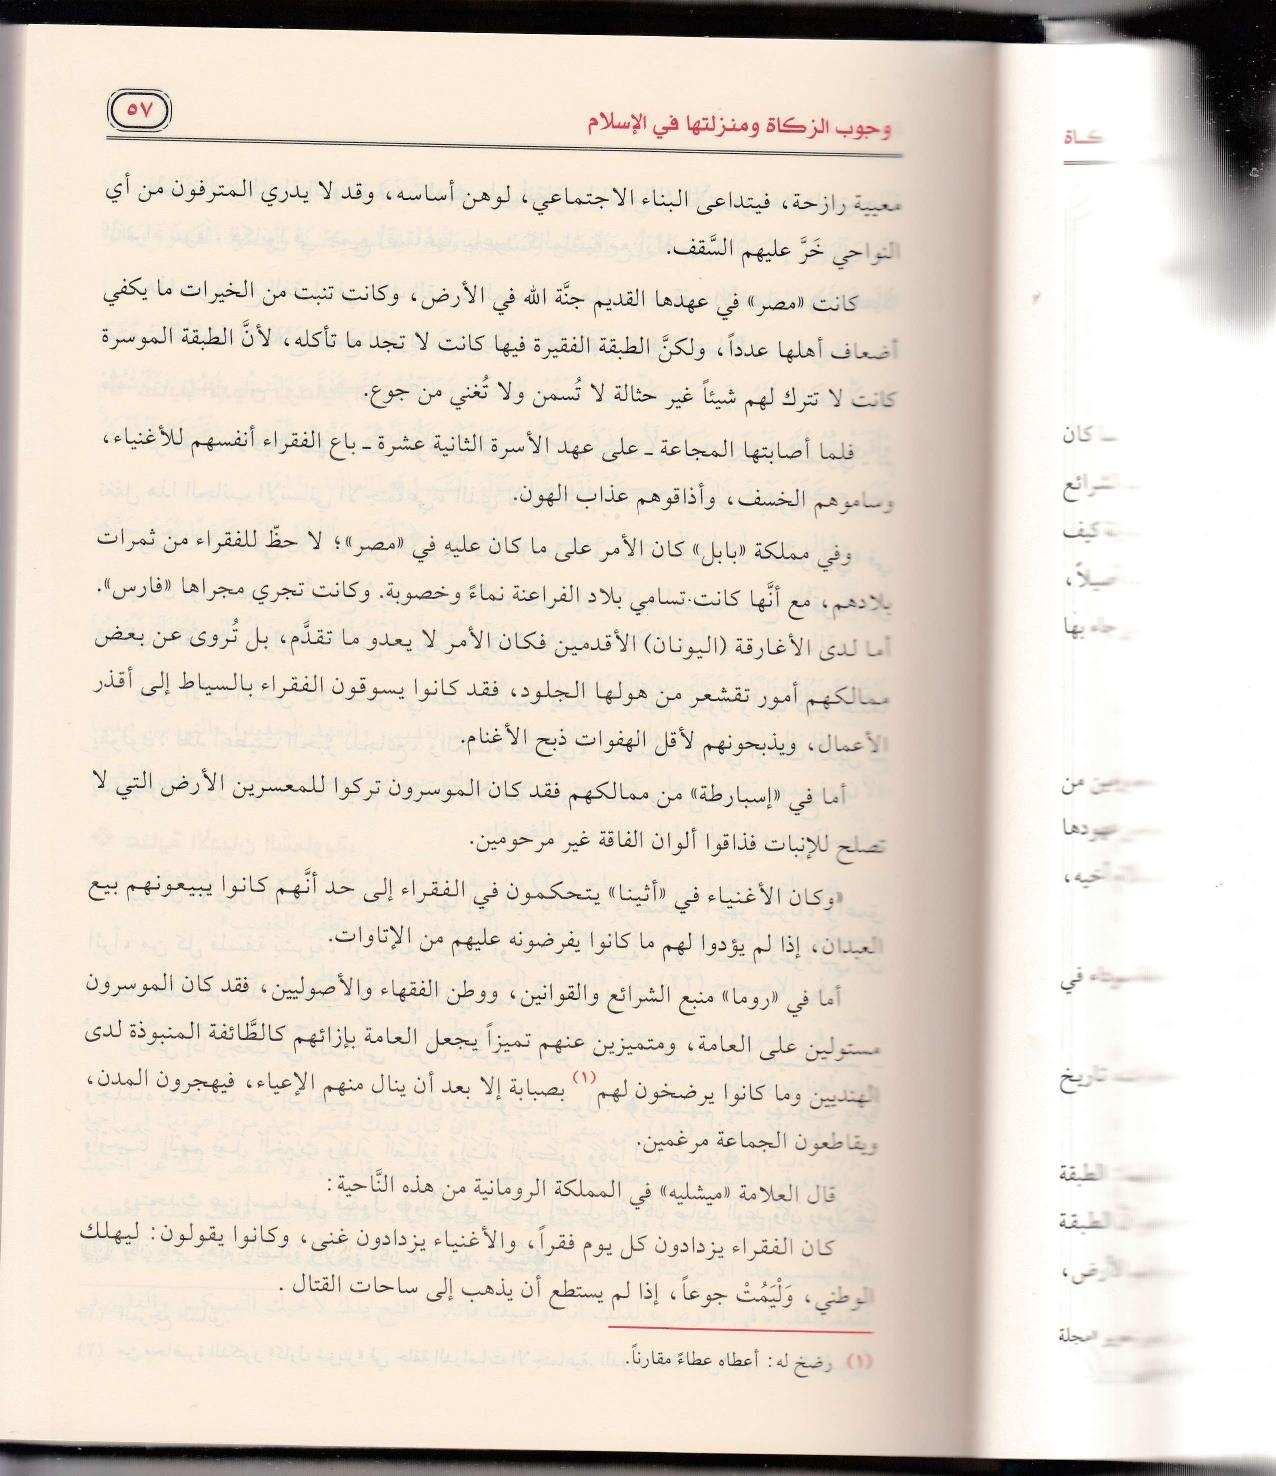 وجوب الزكاة ومنزلتها في الإسلام
٥٧
معيية رازحة، فيتداعى البناء الاجتماعي، لوهن أساسه، وقد لا يدري المترفون من أي
النواحي خَرَّ عليهم السَّقف.
كانت «مصر» في عهدها القديم جنَّة الله في الأرض، وكانت تنبت من الخيرات ما يكفي
أضعاف أهلها عدداً، ولكنَّ الطبقة الفقيرة فيها كانت لا تجد ما تأكله، لأنَّ الطبقة الموسرة
كانت لا تترك لهم شيئاً غير حثالة لا تُسمن ولا تُغني من جوع.
فلما أصابتها المجاعة ـ على عهد الأسرة الثانية عشرة ـ باع الفقراء أنفسهم للأغنياء،
وساموهم الخسف، وأذاقوهم عذاب الهون.
وفي مملكة «بابل» كان الأمر على ما كان عليه في «مصر»؛ لا حظّ للفقراء من ثمرات
بلادهم، مع أنَّها كانت تسامي بلاد الفراعنة نماءً وخصوبة. وكانت تجري مجراها «فارس».
أما لدى الأغارقة (اليونان) الأقدمين فكان الأمر لا يعدو ما تقدَّم، بل تُروى عن بعض
ممالكهم أمور تقشعر من هولها الجلود، فقد كانوا يسوقون الفقراء بالسياط إلى أقذر
الأعمال، ويذبحونهم لأقل الهفوات ذبح الأغنام.
أما في «إسبارطة» من ممالكهم فقد كان الموسرون تركوا للمعسرين الأرض التي لا
تصلح للإنبات فذاقوا ألوان الفاقة غير مرحومين.
وكان الأغنياء في «أثينا» يتحكمون في الفقراء إلى حد أنَّهم كانوا يبيعونهم بيع
العبدان، إذا لم يؤدوا لهم ما كانوا يفرضونه عليهم من الإتاوات.
أما في «روما» منبع الشرائع والقوانين، ووطن الفقهاء والأصوليين، فقد كان الموسرون
مستولين على العامة، ومتميزين عنهم تميزاً يجعل العامة بإزائهم كالطَّائفة المنبوذة لدى
الهنديين وما كانوا يرضخون لهم(١) بصبابة إلا بعد أن ينال منهم الإعياء، فيهجرون المدن،
ويقاطعون الجماعة مرغمين.
قال العلامة «ميشليه» في المملكة الرومانية من هذه النَّاحية:
كان الفقراء يزدادون كل يوم فقراً، والأغنياء يزدادون غنى، وكانوا يقولون: ليهلك
الوطني، وَلْيَمُتْ جوعاً، إذا لم يستطع أن يذهب إلى ساحات القتال .
(١) رضخ له: أعطاه عطاءً مقارناً.
كان
الشرائع
كيف
جاء بها
من
عهودها
أخيه،
في
تاريخ
الطبقة
الطبقة
الأرض،
المجلة